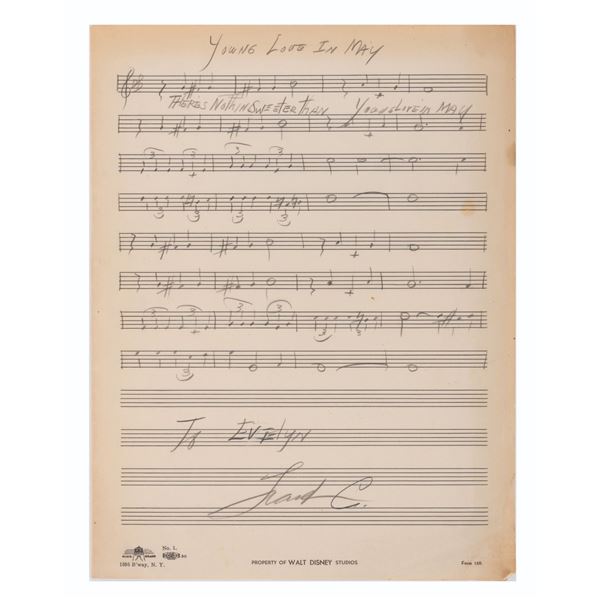 YOUNG LOVE IN MAY
THERES NOTHIN SWEETER THAN YOUNG LOVE IN MAY
To EVElyN
Frank C.
No. 1.
1595 B'way, N. Y.
PROPERTY OF WALT DISNEY STUDIOS